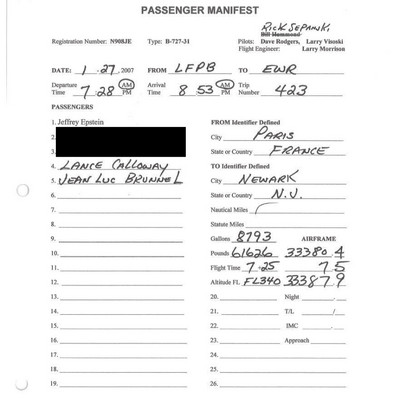 PASSENGER MANIFEST
RICK SEPANKI
Bill Hammond
Registration Number: N908JE Type: B-727-31 Pilots: Dave Rodgers, Larry Visoski
Flight Engineer: Larry Morrison
DATE: 1.27, 2007 FROM LFPB TO EWR
Departure Time 7:28 AM PM Arrival Time 8 53 AM PM Trip Number 423
PASSENGERS
1. Jeffrey Epstein FROM Identifier Defined
2. City PARIS
3. State or Country FRANCE
4. LANCE CALLOWAY TO Identifier Defined
5. JEAN LUC BRUNNEL City NEWARK
6. State or Country N.J.
7. Nautical Miles
8. Statute Miles
9. Gallons 8793 AIRFRAME
10. Pounds 61626 33380 4
11. Flight Time 7.25 7 5
12. Altitude FL FL340 333879
13. 20. Night
14. 21. T/L /
15. 22. IMC
16. 23. Approach
17. 24.
18. 25.
19. 26.